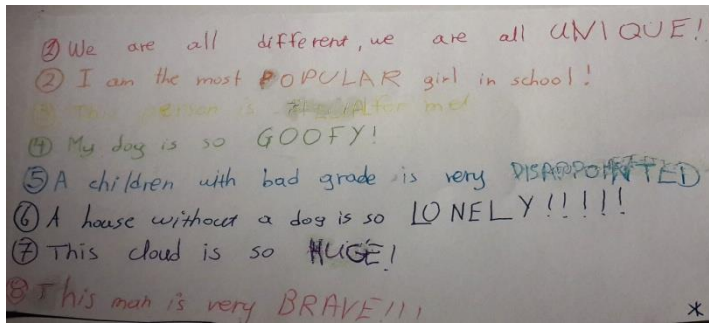 ① We are all different, we are all UNIQUE!
② I am the most POPULAR girl in school!
③ This person is for me!
④ My dog is so GOOFY!
⑤ A children with bad grade is very DISAPPOINTED
⑥ A house without a dog is so LONELY!!!!!
⑦ This cloud is so HUGE!
⑧ This man is very BRAVE!!!
*